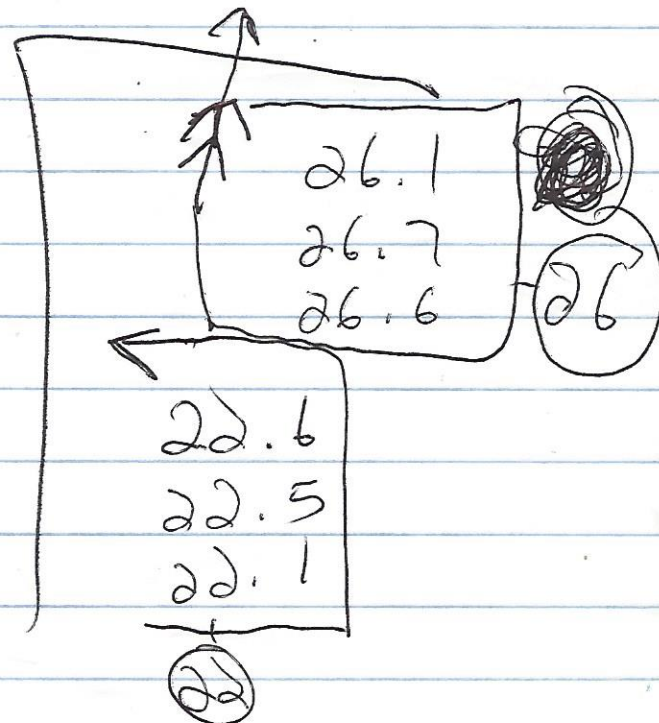 26.1
26.7
26.6
26
22.6
22.5
22.1
22